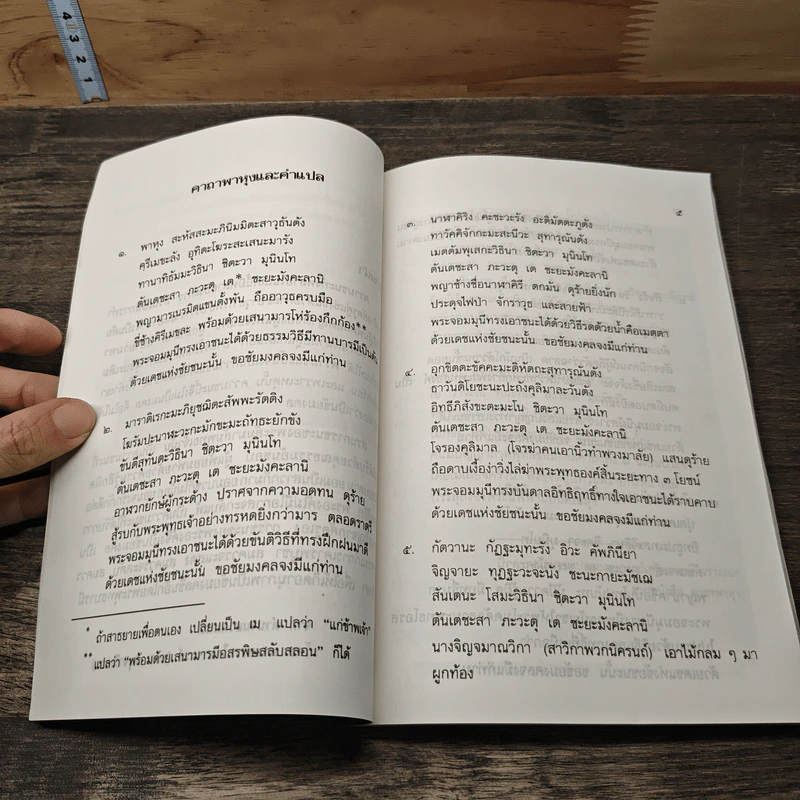 4
3
2
1
คาถาพาหุงและคำแปล
๑. พาหุง สะหัสสะมะภินิมมิตะสาวุธันตัง
ครีเมขะลัง อุทิตะโฆระสะเสนะมารัง
ทานาทิธัมมะวิธินา ชิตะวา มุนินโท
ตันเตชะสา ภะวะตุ เต* ชะยะมังคะลานิ
พญามารเนรมิตแขนตั้งพัน ถืออาวุธครบมือ
ขี่ช้างคิรีเมขละ พร้อมด้วยเสนามารโห่ร้องกึกก้อง**
พระจอมมุนีทรงเอาชนะได้ด้วยธรรมวิธีมีทานบารมีเป็นต้น
ด้วยเดชแห่งชัยชนะนั้น ขอชัยมงคลจงมีแก่ท่าน
๒. มาราติเรกะมะภิยุชฌิตะสัพพะรัตติง
โฆรัมปะนาฬะวะกะมักขะมะถัทธะยักขัง
ขันตีสุทันตะวิธินา ชิตะวา มุนินโท
ตันเตชะสา ภะวะตุ เต ชะยะมังคะลานิ
อาฬวกยักษ์ผู้กระด้าง ปราศจากความอดทน ดุร้าย
สู้รบกับพระพุทธเจ้าอย่างทรหดยิ่งกว่ามาร ตลอดราตรี
พระจอมมุนีทรงเอาชนะได้ด้วยขันติวิธีที่ทรงฝึกฝนมาดี
ด้วยเดชแห่งชัยชนะนั้น ขอชัยมงคลจงมีแก่ท่าน
* ถ้าสาธยายเพื่อตนเอง เปลี่ยนเป็น เม แปลว่า "แก่ข้าพเจ้า"
** แปลว่า "พร้อมด้วยเสนามารมีอสรพิษสลับสลอน" ก็ได้
๕
๓. นาฬาคิริง คะชะวะรัง อะติมัตตะภูตัง
ทาวัคคิจักกะมะสะนีวะ สุทารุณันตัง
เมตตัมพุเสกะวิธินา ชิตะวา มุนินโท
ตันเตชะสา ภะวะตุ เต ชะยะมังคะลานิ
พญาช้างชื่อนาฬาคิรี ตกมัน ดุร้ายยิ่งนัก
ประดุจไฟป่า จักราวุธ และสายฟ้า
พระจอมมุนีทรงเอาชนะได้ด้วยวิธีรดด้วยน้ำคือเมตตา
ด้วยเดชแห่งชัยชนะนั้น ขอชัยมงคลจงมีแก่ท่าน
๔. อุกขิตตะขัคคะมะติหัตถะสุทารุณันตัง
ธาวันติโยชะนะปะถังคุลิมาละวันตัง
อิทธีภิสังขะตะมะโน ชิตะวา มุนินโท
ตันเตชะสา ภะวะตุ เต ชะยะมังคะลานิ
โจรองคุลิมาล (โจรฆ่าคนเอานิ้วทำพวงมาลัย) แสนดุร้าย
ถือดาบเงื้อง่าวิ่งไล่ฆ่าพระพุทธองค์สิ้นระยะทาง ๓ โยชน์
พระจอมมุนีทรงบันดาลอิทธิฤทธิ์ทางใจเอาชนะได้ราบคาบ
ด้วยเดชแห่งชัยชนะนั้น ขอชัยมงคลจงมีแก่ท่าน
๕. กัตวานะ กัฏฐะมุทะรัง อิวะ คัพภินียา
จิญจายะ ทุฏฐะวะจะนัง ชะนะกายะมัชเฌ
สันเตนะ โสมะวิธินา ชิตะวา มุนินโท
ตันเตชะสา ภะวะตุ เต ชะยะมังคะลานิ
นางจิญจมาณวิกา (สาวิกาพวกนิครนถ์) เอาไม้กลม ๆ มา
ผูกท้อง